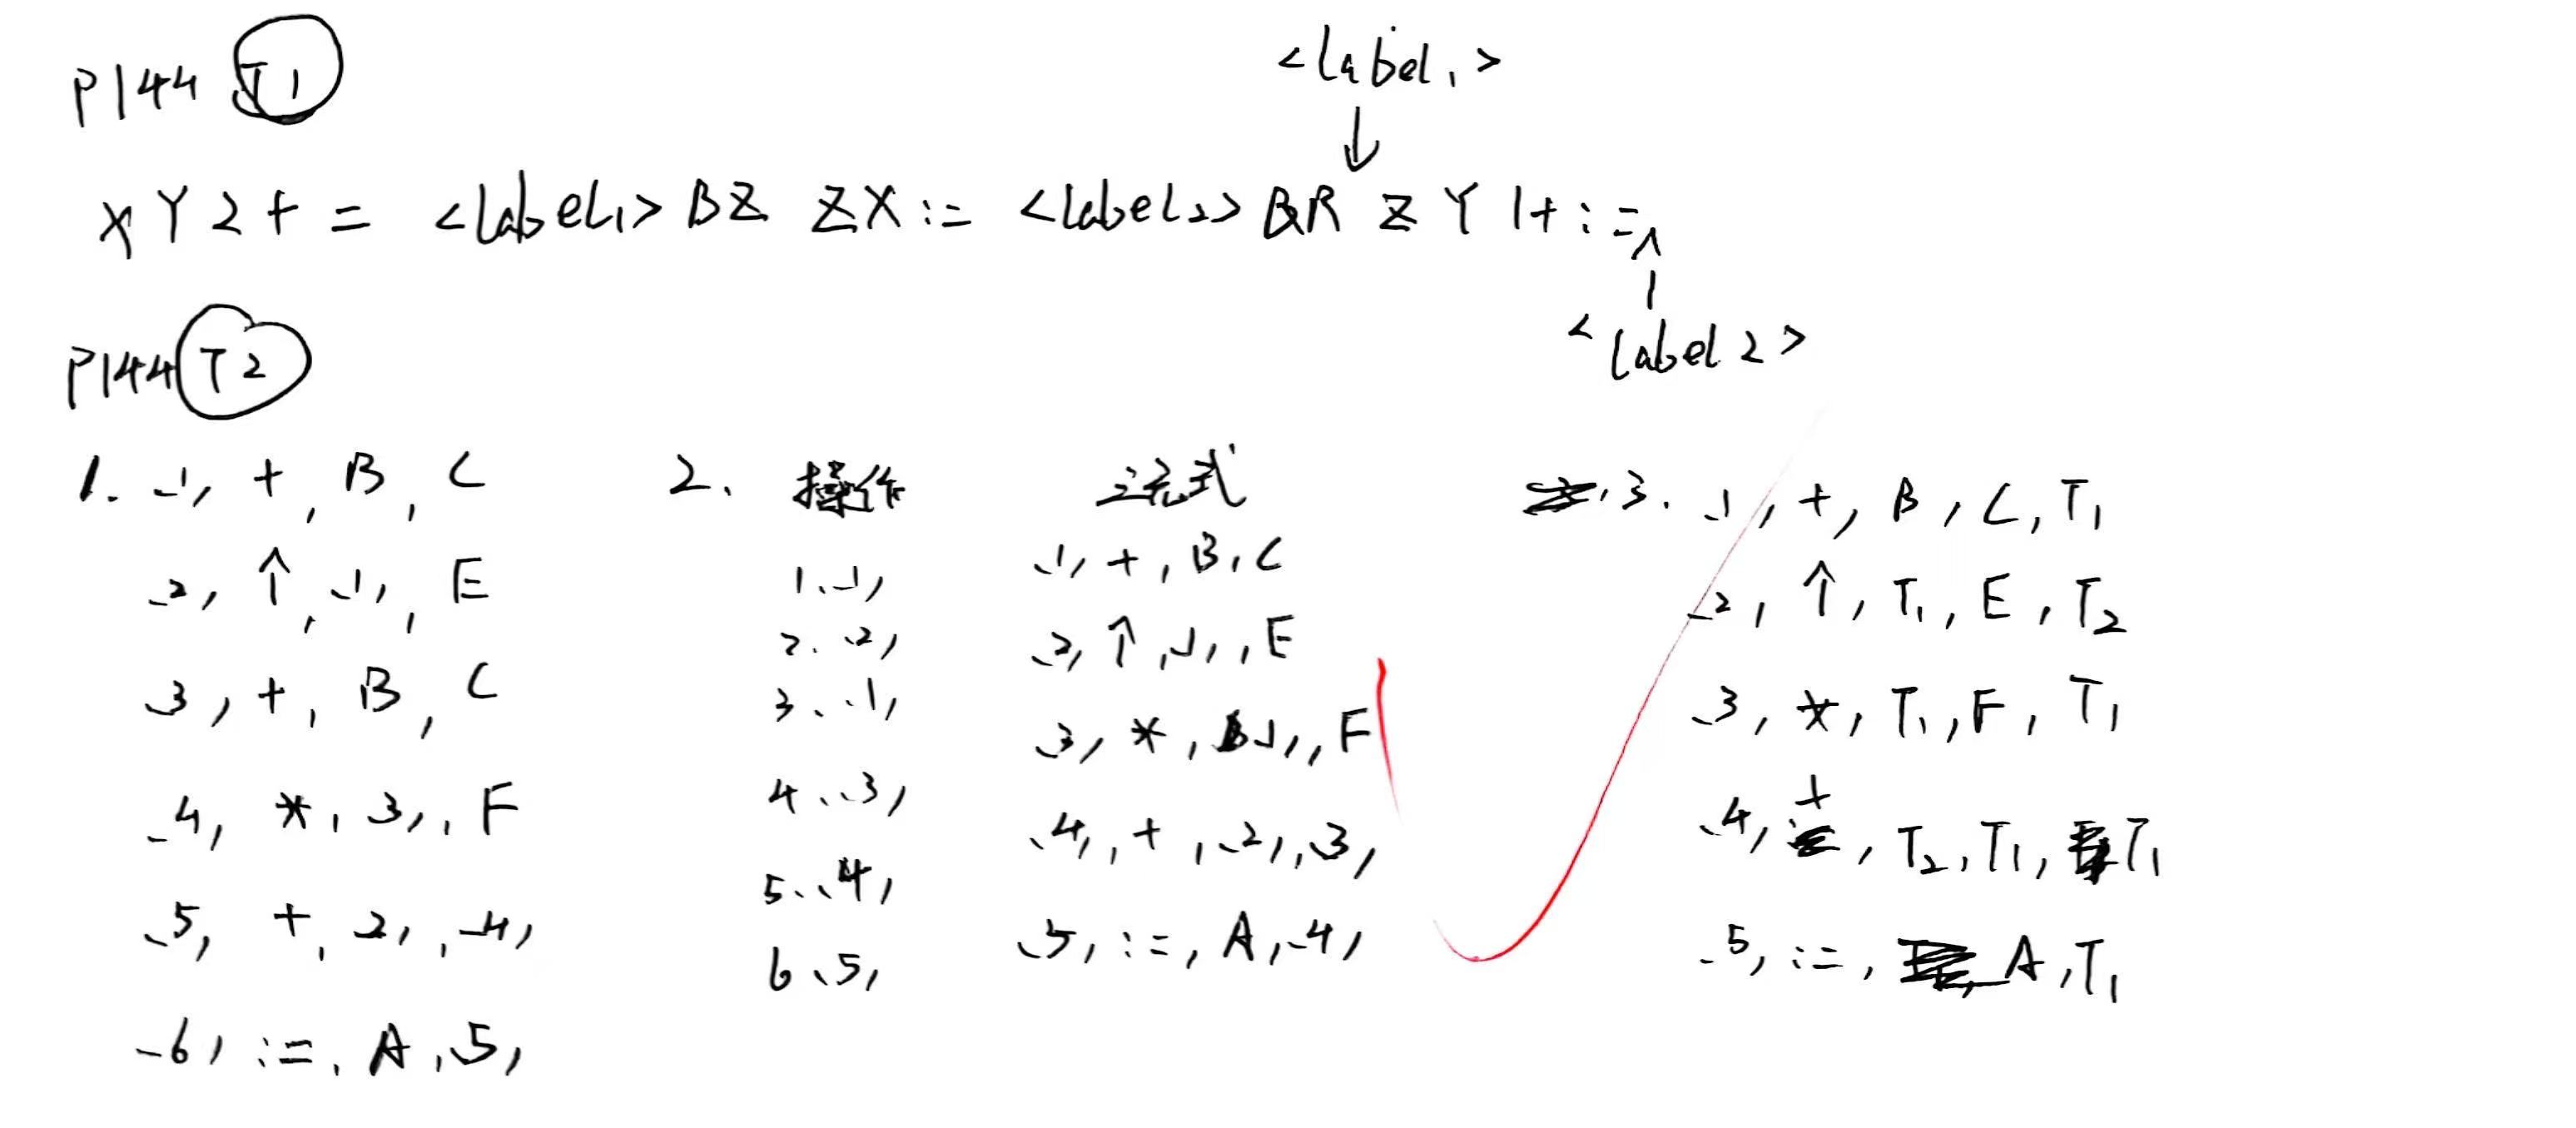 P144 T1
<label1>
↓
X Y 2 + = <label1> BZ ZX := <label2> BR Z Y 1 + :=
<label2>
P144 T2
1. (1), +, B, C
(2), ↑, (1), , E
(3), +, B, C
(4), *, (3), , F
(5), +, (2), , (4),
(6), :=, A, (5),
2、 操作 三元式
1、(1), (1), +, B, C
2、(2), (2), ↑, (1), , E
3、(1), (3), *, (1), , F
4、(3), (4), , +, (2), , (3),
5、(4), (5), :=, A, (4),
6、(5),
3. (1), +, B, C, T1
(2), ↑, T1, E, T2
(3), *, T1, F, T1
(4), +, T2, T1, T1
(5), :=, A, T1